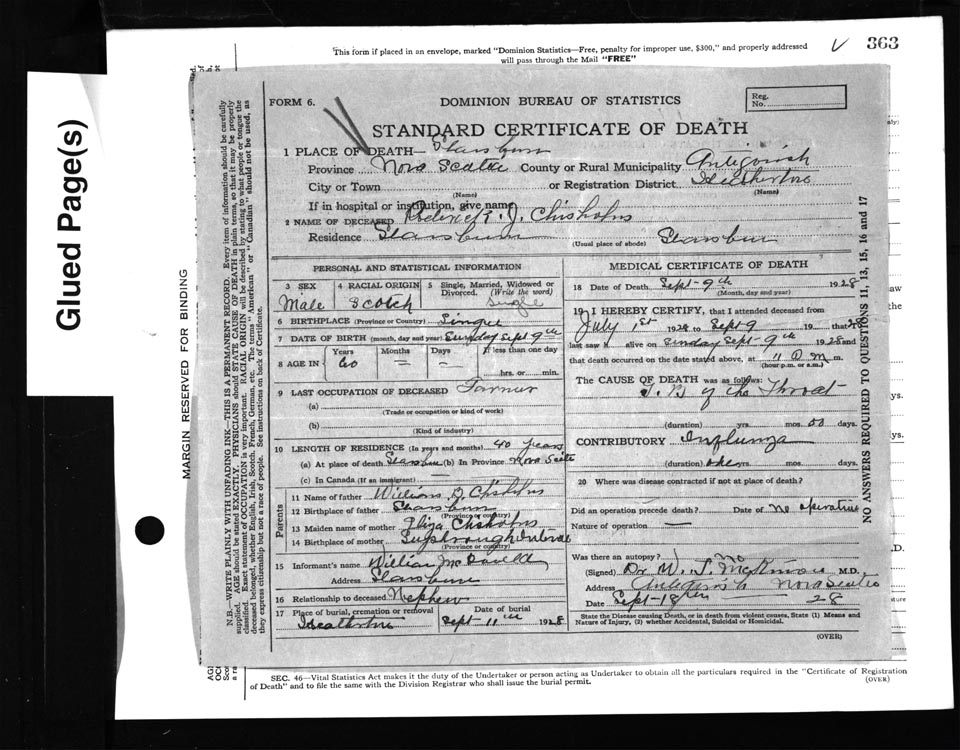 This form if placed in an envelope, marked "Dominion Statistics—Free, penalty for improper use, $300," and properly addressed
will pass through the Mail "FREE"
363
Glued Page(s)
MARGIN RESERVED FOR BINDING
N.B.—WRITE PLAINLY WITH UNFADING INK—THIS IS A PERMANENT RECORD. Every item of information should be carefully
supplied. AGE should be stated EXACTLY. PHYSICIANS should STATE CAUSE OF DEATH in plain terms, so that it may be properly
classified. Exact statement of OCCUPATION is very important. RACIAL ORIGIN will be described by stating to what people or tongue the
deceased belonged, whether English, Irish, Scotch, French, German, etc. The terms "American" or "Canadian" should not be used, as
they express citizenship but not a race of people. See instructions on back of Certificate.
FORM 6.
DOMINION BUREAU OF STATISTICS
Reg.
No.
STANDARD CERTIFICATE OF DEATH
1 PLACE OF DEATH—
Province Nova Scotia County or Rural Municipality Antigonish
City or Town or Registration District
(Name) (Name)
If in hospital or institution, give name
2 NAME OF DECEASED J. Chisholm
Residence (Usual place of abode)
PERSONAL AND STATISTICAL INFORMATION
3 SEX Male
4 RACIAL ORIGIN Scotch
5 Single, Married, Widowed or Divorced. (Write the word) Single
6 BIRTHPLACE (Province or Country)
7 DATE OF BIRTH (month, day and year) Sunday Sept 9th
8 AGE IN Years Months Days If less than one day
60 — — hrs. or min.
9 LAST OCCUPATION OF DECEASED Farmer
(a)
(Trade or occupation or kind of work)
(b)
(Kind of industry)
10 LENGTH OF RESIDENCE (In years and months) 40 years
(a) At place of death (b) In Province Nova Scotia
(c) In Canada (If an immigrant) —
Parents
11 Name of father Chisholm
12 Birthplace of father
(Province or country)
13 Maiden name of mother Eliza Chisholm
14 Birthplace of mother
(Province or country)
15 Informant's name William
Address
16 Relationship to deceased Nephew
17 Place of burial, cremation or removal Date of burial
Sept 11th 1928
MEDICAL CERTIFICATE OF DEATH
18 Date of Death Sept-9th 1928
(Month, day and year)
19 I HEREBY CERTIFY, that I attended deceased from
July 1st 1928 to Sept 9 19 that
last saw h alive on Sunday Sept-9th 1928 and
that death occurred on the date stated above, at 11 m.
(hour p.m. or a.m.)
The CAUSE OF DEATH was as follows:
T.B of the Throat
(duration) yrs. mos. days.
CONTRIBUTORY
(duration) yrs. mos. days.
20 Where was disease contracted if not at place of death?
Did an operation precede death? Date of no
Nature of operation —
Was there an autopsy?
(Signed) Dr W. M.D.
Address Antigonish Nova Scotia
Date Sept-18th 28
State the Disease causing Death, or in death from violent causes, State (1) Means and
Nature of Injury, (2) whether Accidental, Suicidal or Homicidal.
(OVER)
NO ANSWERS REQUIRED TO QUESTIONS 11, 13, 15, 16 and 17
SEC. 46—Vital Statistics Act makes it the duty of the Undertaker or person acting as Undertaker to obtain all the particulars required in the "Certificate of Registration
of Death" and to file the same with the Division Registrar who shall issue the burial permit.
(OVER)